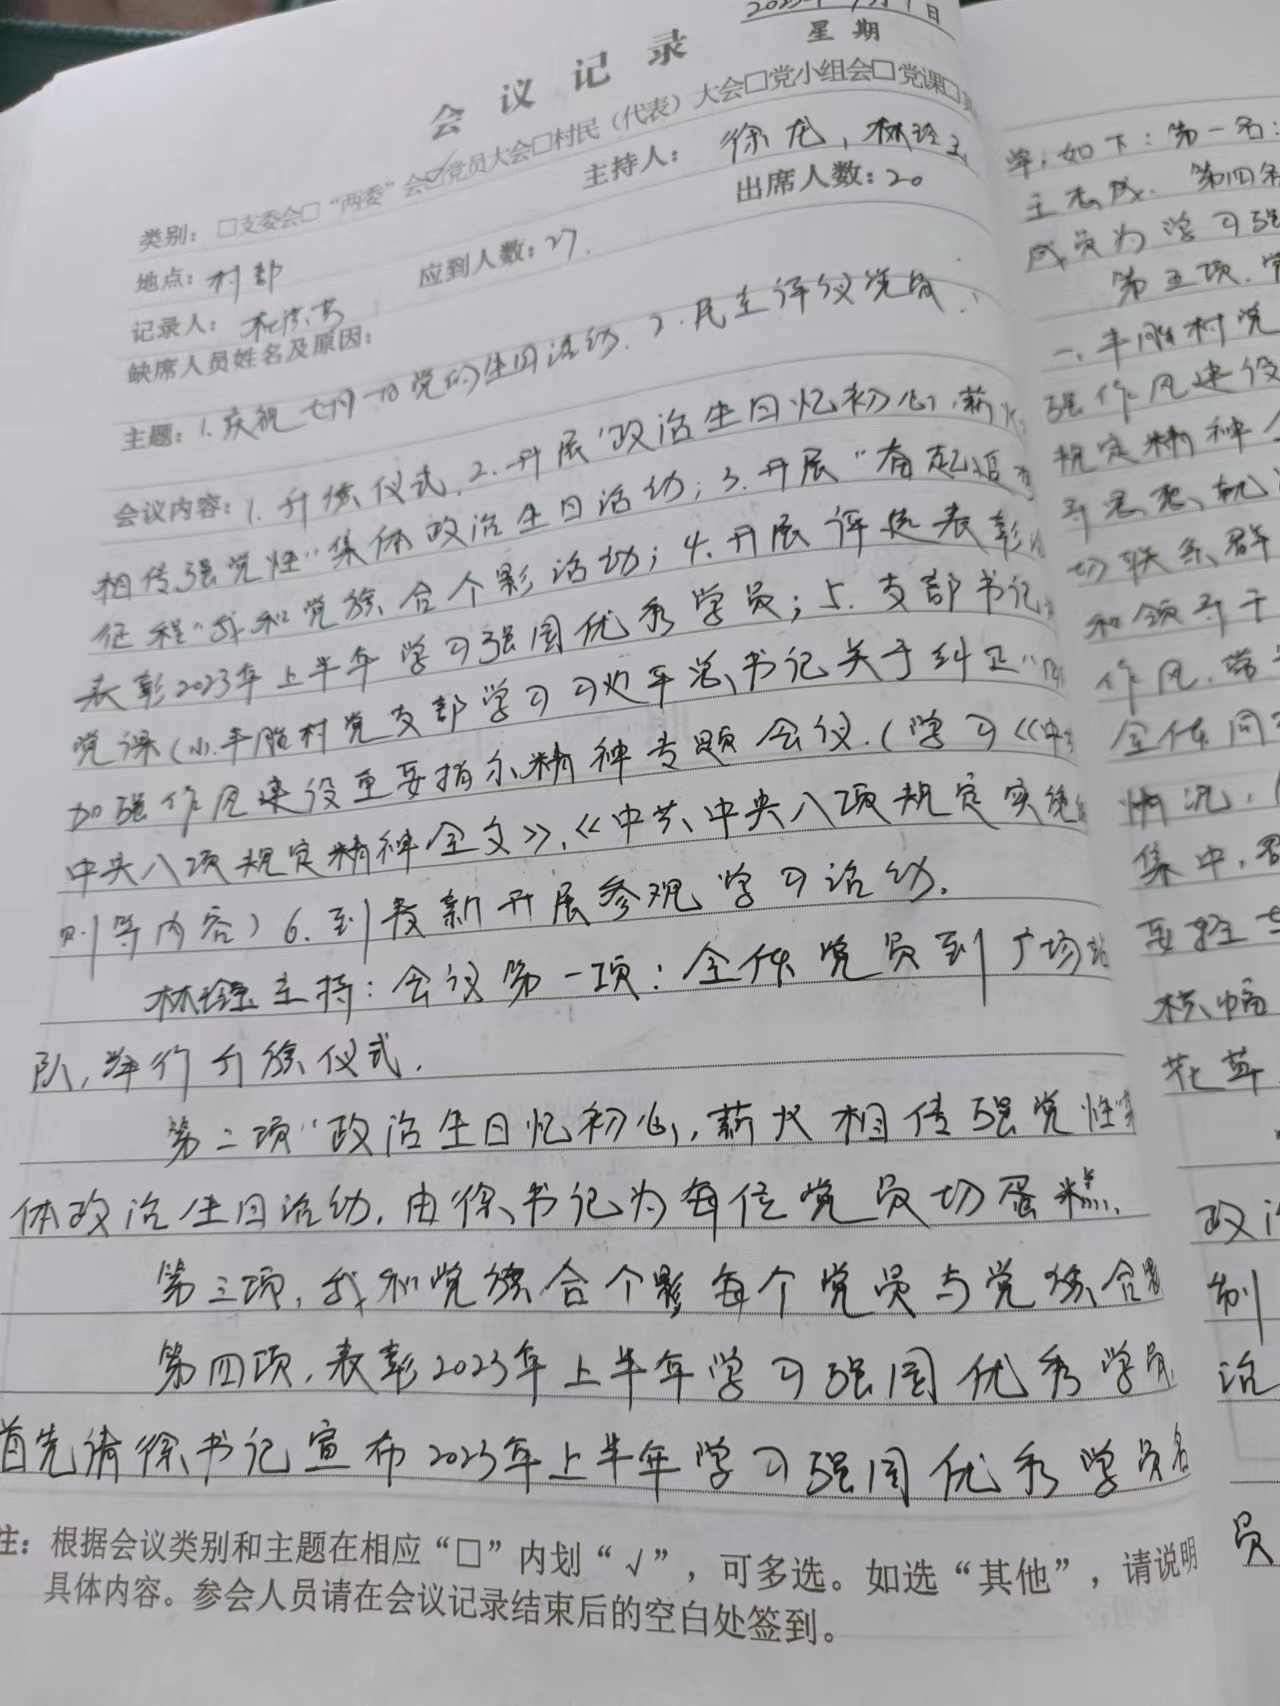 会议记录
星期
类别：□支委会□“两委”会☑党员大会□村民（代表）大会□党小组会□党课□
地点：村部
主持人：徐龙，林
记录人：
应到人数：27.
出席人数：20
缺席人员姓名及原因：
主题：1.庆祝七月一日党的生日活动.2.民主评议党员.
会议内容：1.升旗仪式.2.开展“政治生日忆初心,薪火
相传强党性”集体政治生日活动；3.开展“奋起
征程”我和党旗合个影活动；4.开展评选表彰
表彰2023年上半年学习强国优秀学员；5.支部书记
党课(1).丰胜村党支部学习习近平总书记关于纠正“
加强作风建设重要指示精神专题会议.(学习《
中央八项规定精神全文》,《中共中央八项规定实施
则等内容)6.到 新开展参观学习活动.
林 主持：会议第一项：全体党员到广场
队,举行升旗仪式.
第二项“政治生日忆初心,薪火相传强党性”
体政治生日活动.由徐书记为每位党员切蛋糕.
第三项,我和党旗合个影每个党员与党旗合
第四项,表彰2023年上半年学习强国优秀学员
首先请徐书记宣布2023年上半年学习强国优秀学员名
注：根据会议类别和主题在相应“□”内划“√”，可多选。如选“其他”，请说明
具体内容。参会人员请在会议记录结束后的空白处签到。
单,如下：第一名：
第四名
成员为学习强
第五项.党
一.丰胜村党
强作风建设
规定精神
导思想,
切联系群
和领导干
作风.
全体同
情况,
集中,
要
横幅
花草
政治
制
活
员